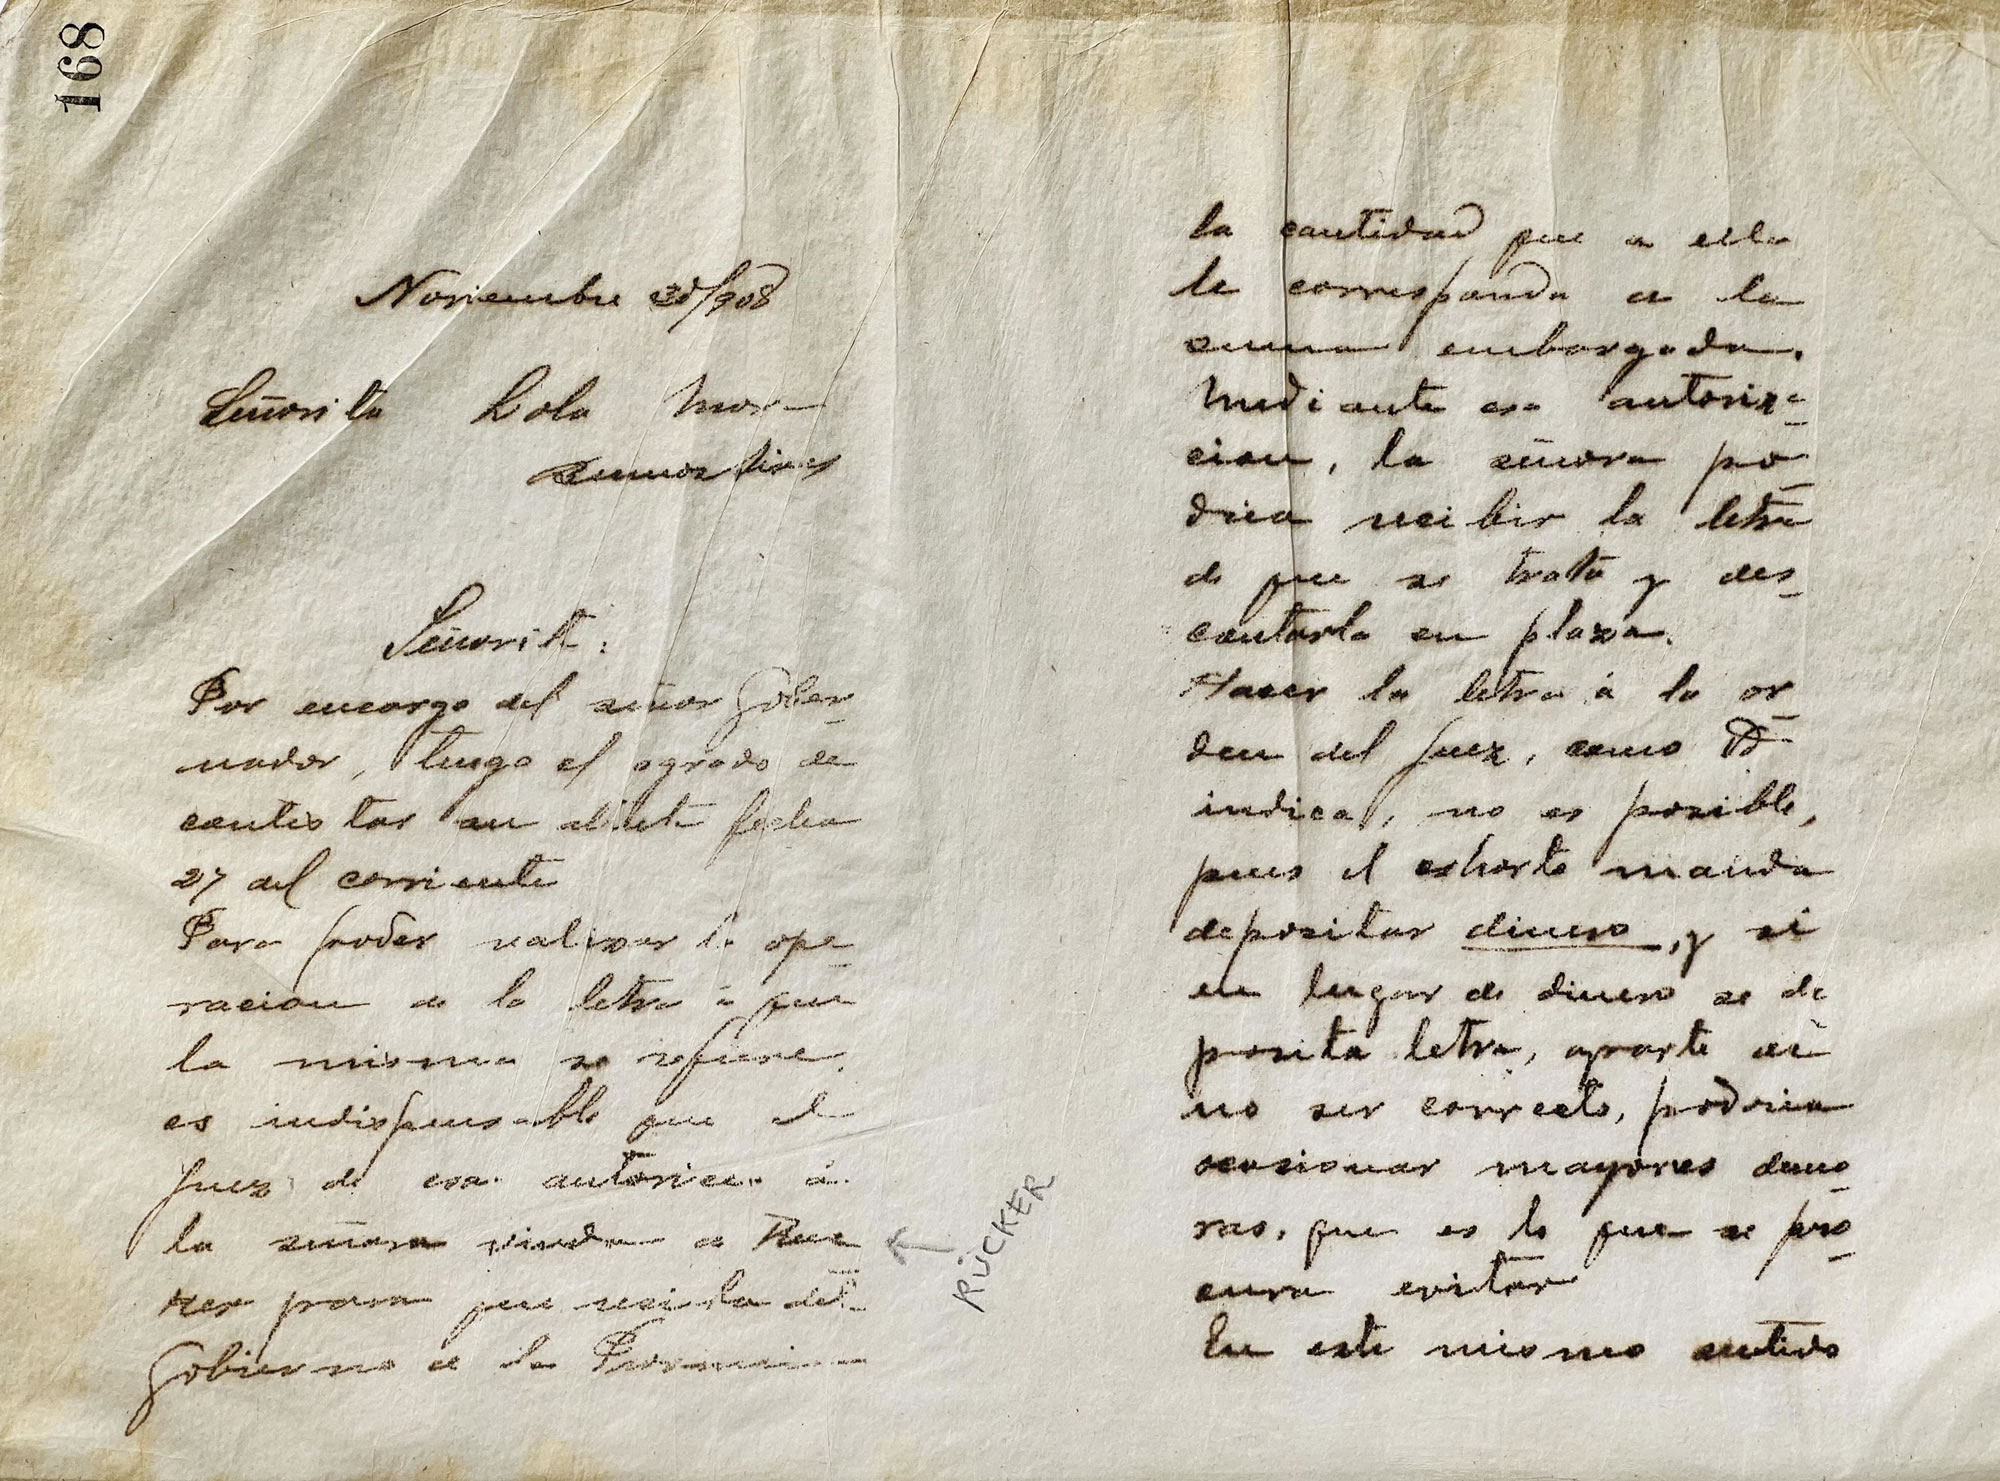 168
Noviembre 30/908
Señorita Lola Mora
Buenos Aires
Señorita:
Por encargo del señor Gober-
nador, tengo el agrado de
contestar su atenta fecha
27 del corriente
Para poder realizar la ope-
racion de la letra á que
la misma se refiere,
es indispensable que el
Juez de esa autorice á
la señora viuda de Ruc
ker para que reciba del
Gobierno de la Provincia
RÜCKER
la cantidad que a ella
le corresponda de la
suma embargada.
Mediante esa autoriza-
cion, la señora po-
dria recibir la letra
de que se trata y des-
contarla en plaza.
Hacer la letra á la or-
den del Juez, como Vd
indica, no es posible,
pues el exhorto manda
depositar dinero, y si
en lugar de dinero se de
posita letra, aparte de
no ser correcto, podria
ocasionar mayores demo-
ras, que es lo que se pro-
cura evitar
En este mismo sentido